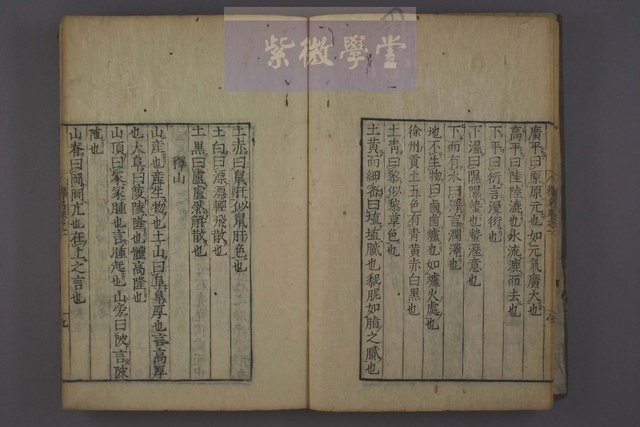 紫微學堂
廣平曰原原元也如元氣廣大也
高平曰陸陸漉也水流漉而去也
下平曰衍言漫衍也
下濕曰隰隰蟄也蟄溼意也
下而有水曰澤言潤澤也
地不生物曰鹵鹵爐也如爐火處也
徐州貢土五色有青黃赤白黑也
土青曰黎似黎草色也
土黃而細密曰埴埴膩也黏胒如脂之膩也
土赤曰鼠肝似鼠肝色也
土白曰漂漂輕飛散也
土黑曰盧盧然解散也
釋山
山產也產生物也土山曰阜阜厚也言高厚
也大阜曰陵陵隆也體高隆也
山頂曰冢冢腫也言腫起也山旁曰陂言陂
陁也
山脊曰岡岡亢也在上之言也